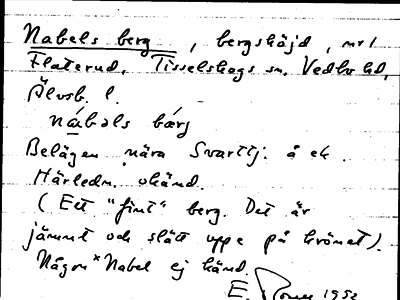 Nabels berg, bergshöjd, nr 1
Flaterud, Tisselskogs sn, Vedbo hd,
Älvsb. l.
nábəls bærj
Belägen nära Svarttj. å ek.
Härledn. okänd.
(Ett "fint" berg. Det är
jämnt och slätt uppe på krönet).
Någon *Nabel ej känd.
E. 1952